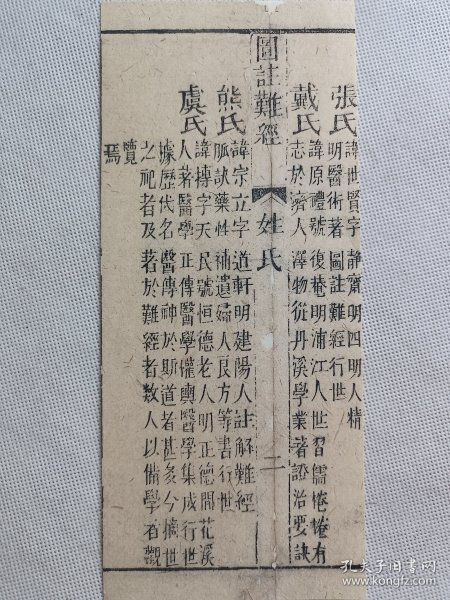 張氏 諱世賢字靜齋明四明人精
明醫術著圖註難經行世
戴氏 諱原禮號復菴明浦江人世習儒惓惓有
志於濟人澤物從丹溪學業著證治要訣
圖註難經 姓氏 二
熊氏 諱宗立字道軒明建陽人註解難經
脈訣藥性補遺婦人良方等書行世
虞氏 諱摶字天民號恒德老人明正德間花溪
人著醫學正傳醫學權輿醫學集成行世
據歷代名醫傳神於斯道者甚多今摘世
之祀者及著於難經者数人以備學者觀
覽焉
孔夫子旧书网
kongfz.com